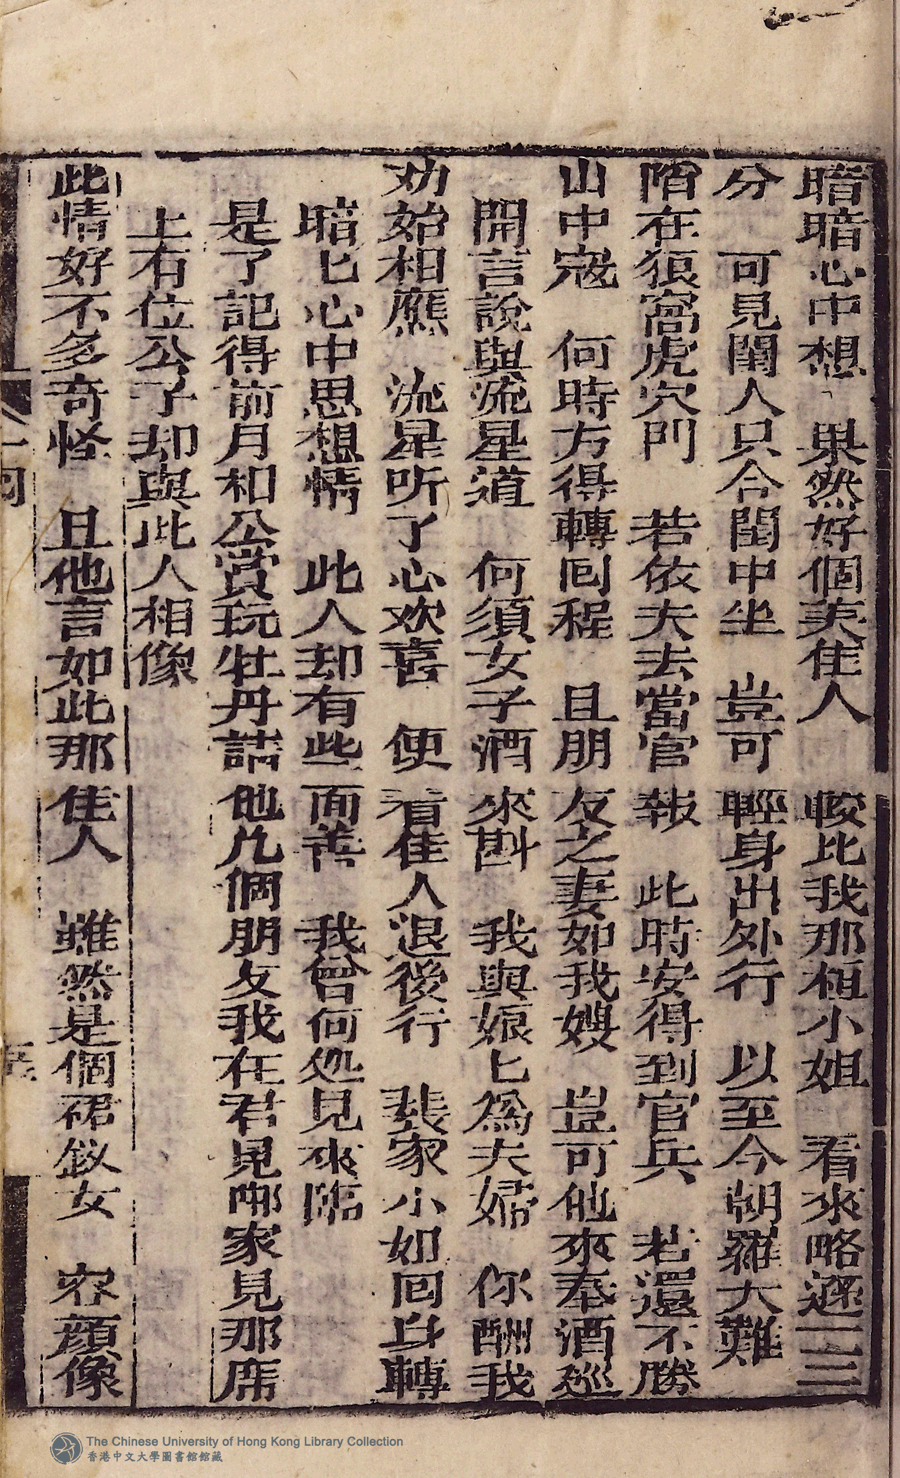 暗暗心中想 果然好個美佳人 較比我那桓小姐 看來略遜二三
分 可見閨人只合閨中坐 豈可輕身出外行 以至今朝羅大難
陷在狼窩虎穴門 若依夫去當官報 此時安得到官兵 若還不勝
山中寇 何時方得轉囘程 且朋友之妻如我嫂 豈可他來奉酒廵
開言說與流星道 何須女子酒來斟 我與娘匕為夫婦 你酬我
劝始相應 流星听了心欢喜 便着佳人退後行 裴家小如囘身轉
暗匕心中思想情 此人却有些面善 我曾何処見來臨
是了記得前月相公賞玩牡丹請他几個朋友我在君見鄊家見那席
上有位公子却與此人相像
此情好不多奇怪 且他言如此那佳人 雖然是個裙釵女 容顔像
The Chinese University of Hong Kong Library Collection
香港中文大學圖書館館藏